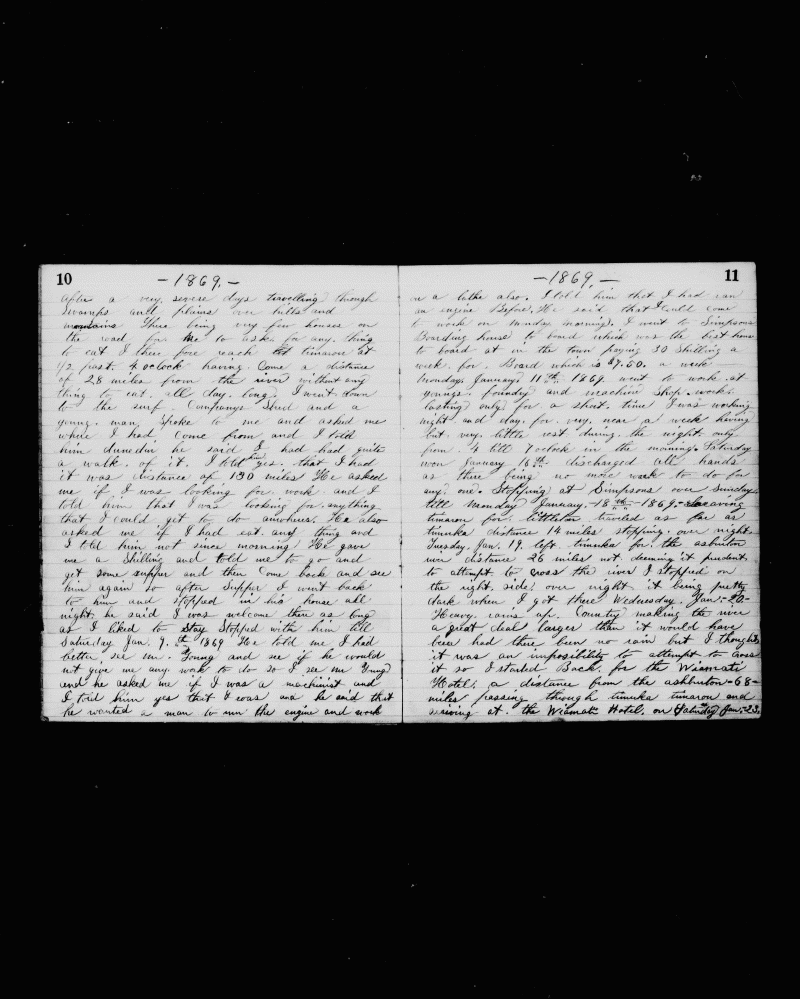 10
-1869.-
after a very severe days travelling through
swamps and plains over hills and
mountains There being very few houses on
the road for me to ask for any thing
to eat I there fore reach timaron at
1/2 past. 4 oclock having. Come a distance
of 28 miles from the river without any
thing to eat. all day. long. I went down
to the surf. Companys Shed and a
young. man. spoke to me and asked me
where I had come from and I told
him dunedin he said I had had quite
a walk. of it. I told him yes. that I had
it was distance of 130 miles He asked
me if I was looking for work and I
told him that I was looking for anything
that I could get to do anwhere. He also
asked me if I had eat. any thing and
I told him not since morning He gave
me a Shilling and told me to go and
get some supper and then come back and see
him again so after supper I went back
to him and stopped in his house all
night. he said I was welcome there as long
as I liked to stay Stopped with him till
Saturday Jan. 9.th 1869 He told me I had
better see mr. Young and see if he would
not give me any work to do so I see mr Young
and he asked me if I was a machinist and
I told him yes that I was and he said that
he wanted a man to run the engine and work
11
-1869.-
on a lathe also. I told him that I had ran
an engine Before. He said that I could come
to work on monday morning. I went to Simpsons
Boarding house to board which was the best house
to board at in the town paying 30 Shilling a
week. for. Board which is $7.50. a week
Monday January 11th 1869. went to work at
youngs. foundry and machine Shop. work
lasting only for a short. time I was working
night and day. for. very. near a week having
but. very. little rest during. the night. only
from. 4 till 7 oclock in the morning. Saturday
noon January 16th. discharged all hands
as there being no more work to do for
any. one. Stopping at Simpsons over Sunday
till Monday January.-18th-1869.- Leaving
timaron for. littleton traveled as far as
timuka distance 14 miles stopping. over night.
Tuesday. Jan. 19. left timuka for. the asburton
river distance 26 miles not. deeming it prudent.
to attempt. to cross the river I stopped on
the right. side. over night. it being pretty
dark when I got there Wednesday. Jan.-20-
Heavy. rains up. Country making the river
a great deal larger than it would have
been had there been no rain but I thought
it was an impossibility to attempt to cross
it so I started Back. for the Wiamati
Hotel. a distance from the ashburton-68-
miles passing through timuka timaron and
ariving at. the Wiamati Hotel. on Saturday Jan.-23.